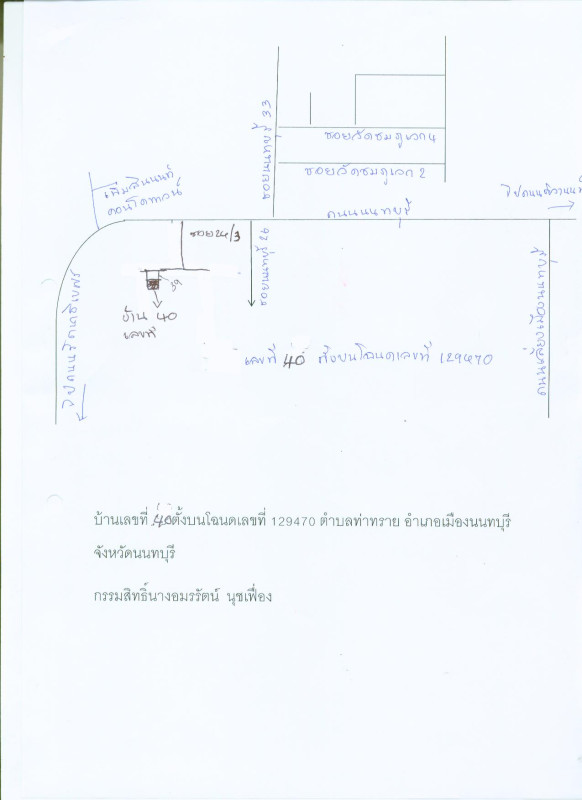 ซอยนนทบุรี 33
ซอยลัดชมภูเวก 4
ซอยลัดชมภูเวก 2
เพิ่มสินนนท์
คอนโดทาวน์
ไปถนนติวานนท์
ถนนนนทบุรี
ซอย 24/3
39
บ้าน 40
เลขที่
เลขที่ 40 ตั้งบนโฉนดเลขที่ 129470
บ้านเลขที่ 40 ตั้งบนโฉนดเลขที่ 129470 ตำบลท่าทราย อำเภอเมืองนนทบุรี
จังหวัดนนทบุรี
กรรมสิทธิ์นางอมรรัตน์ นุชเฟื่อง